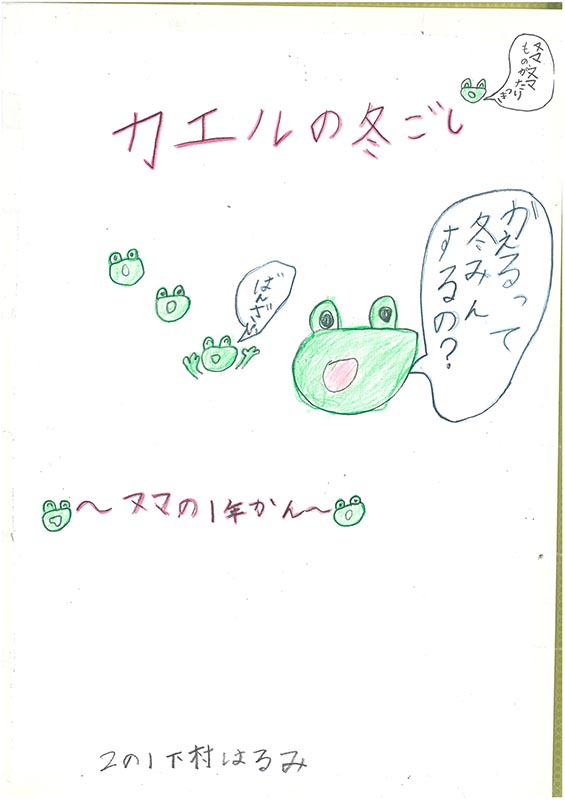 ヌマヌマ
ものがたり
カエルの冬ごし
がえるって
冬みん
するの?
ばんざい
~ヌマの1年かん~
2の1下村はるみ